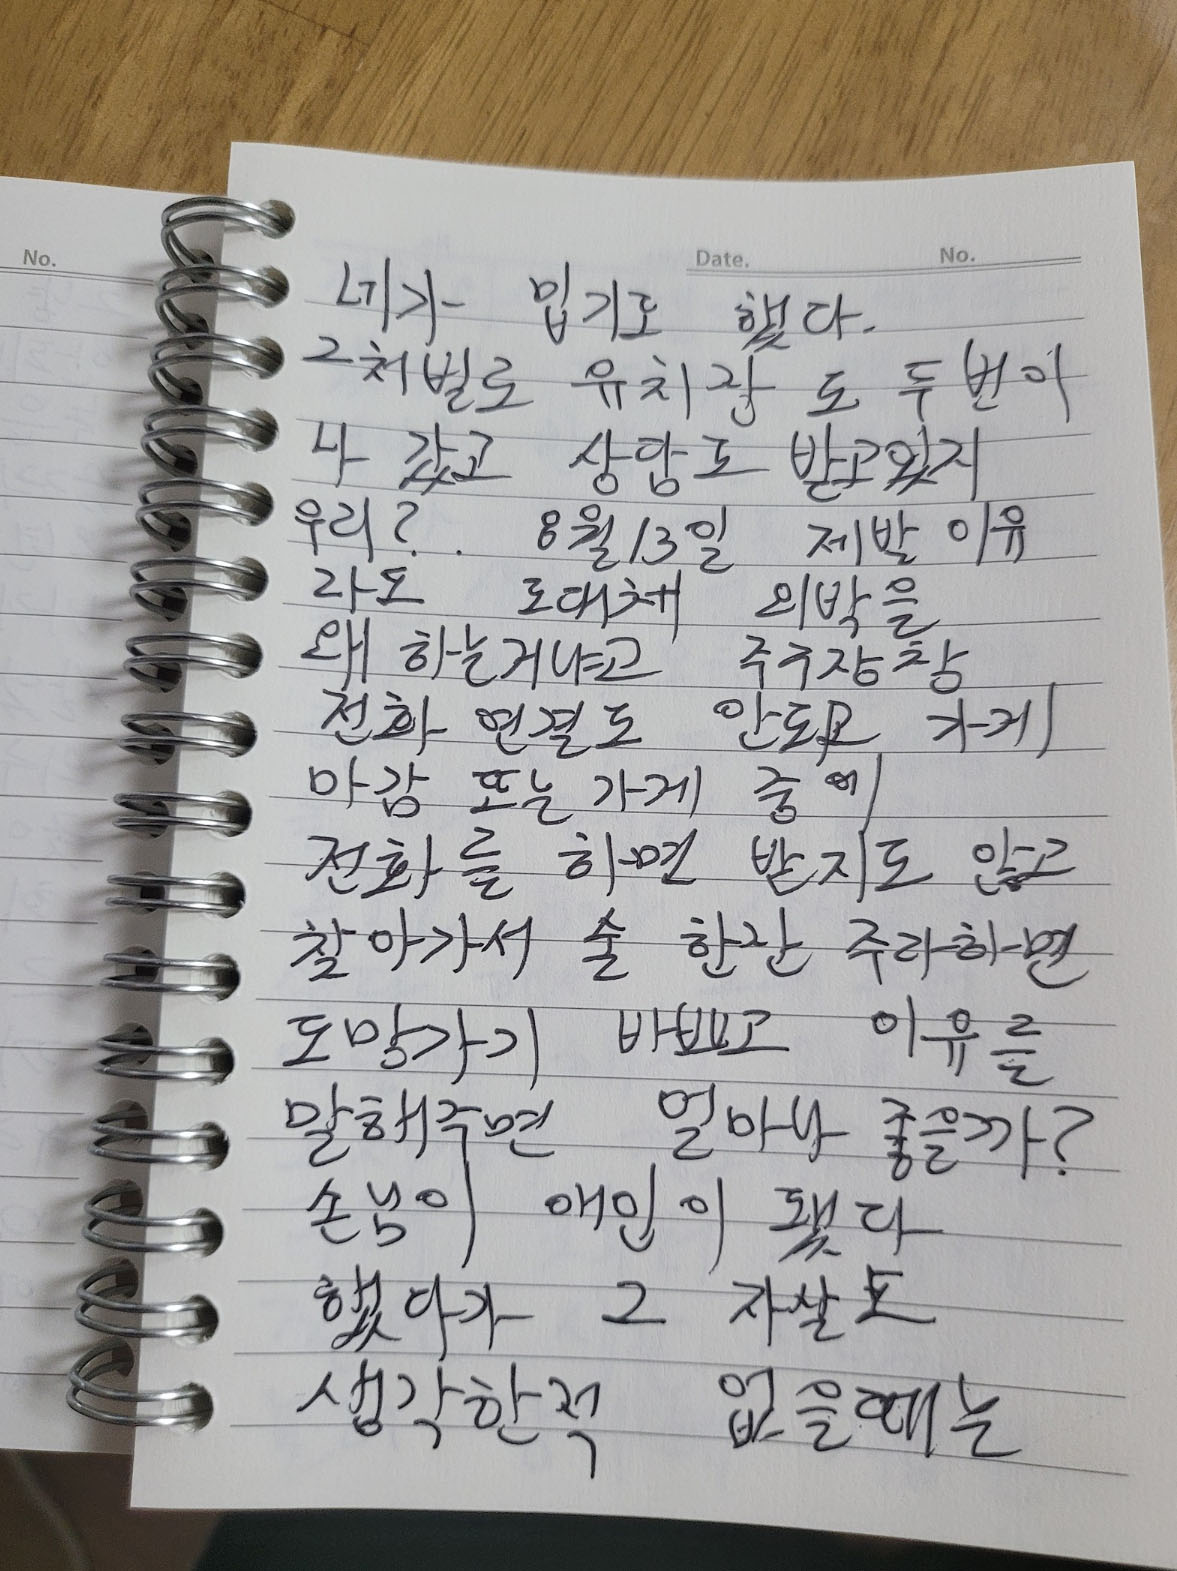 No.
Date. No.
네가 입기도 했다.
그처벌로 유치장 도 두번이
나 갔고 상담도 받고있지
우리?. 8월13일 제발 이유
라도 도대체 외박을
왜 하는거냐고 주구장창
전화 연결도 안되고 가게
마감 또는 가게 중에
전화를 하면 받지도 않고
찾아가서 술 한잔 주라하면
도망가기 바쁘고 이유를
말해주면 얼마나 좋을까?
손님이 애인이 됐다
했다가 그 자살도
생각한적 없을때는